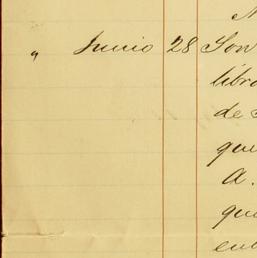 " Junio 28 Son
libro
de
que
A.
que